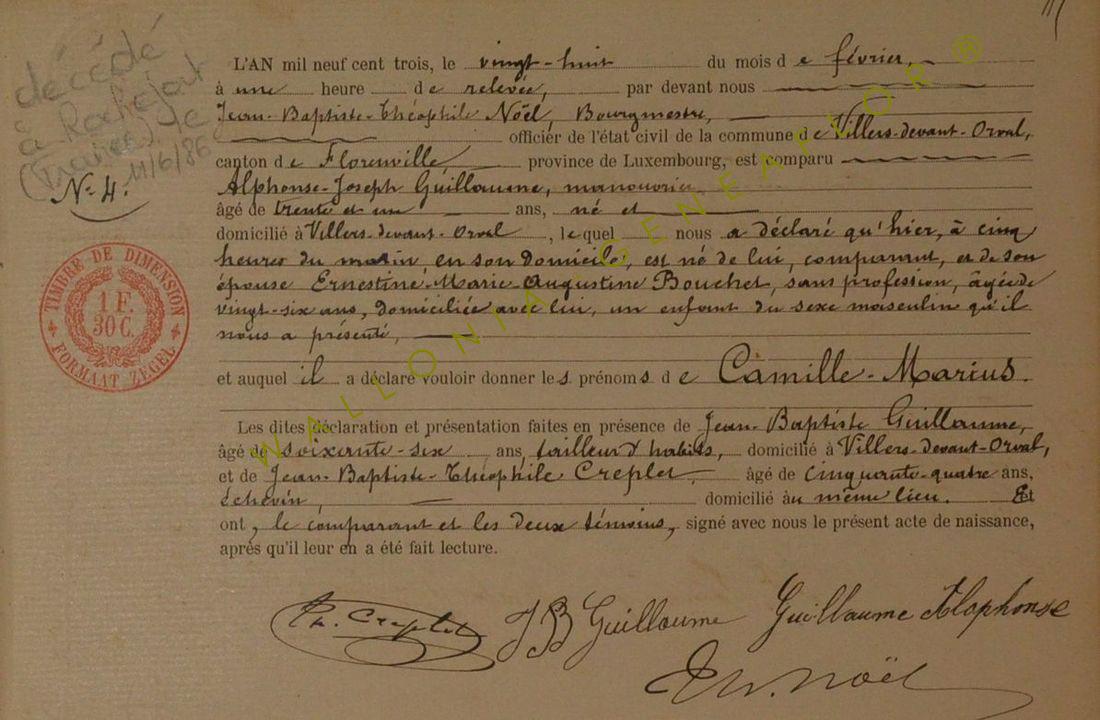 décédé
à Rochefort
le
11/6/86
N° 4.
TIMBRE DE DIMENSION
1 F.
30 C.
FORMAAT ZEGEL
L'AN mil neuf cent trois, le vingt-huit du mois de février,
à une heure de relevée, par devant nous
Jean-Baptiste-Théophile Noël, Bourgmestre,
officier de l'état civil de la commune de Villers-devant-Orval,
canton de Florenville province de Luxembourg, est comparu
Alphonse-Joseph Guillaume, manouvrier
âgé de trente et un ans, né et
domicilié à Villers-devant-Orval, lequel nous a déclaré qu'hier, à cinq
heures du matin, en son domicile, est né de lui, comparant, et de son
épouse Ernestine-Marie-Augustine Bouchet, sans profession, âgée de
vingt-six ans, domiciliée avec lui, un enfant du sexe masculin qu'il
nous a présenté,
et auquel il a déclaré vouloir donner les prénoms de Camille-Marius.
Les dites déclaration et présentation faites en présence de Jean-Baptiste Guillaume,
âgé de soixante-six ans, tailleur d'habits, domicilié à Villers-devant-Orval,
et de Jean-Baptiste-Théophile Creplet, âgé de cinquante-quatre ans,
échevin, domicilié au même lieu. Et
ont, le comparant et les deux témoins, signé avec nous le présent acte de naissance,
après qu'il leur en a été fait lecture.
Th. Creplet JB Guillaume Guillaume Alophonse
Th. Noël
WALLONIA GENEAFOR ®